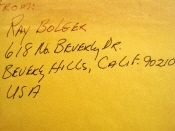 FROM:
RAY BOLGER
618 No. BEVERLY DR.
BEVERLY HILLS, CALIF. 90210
USA